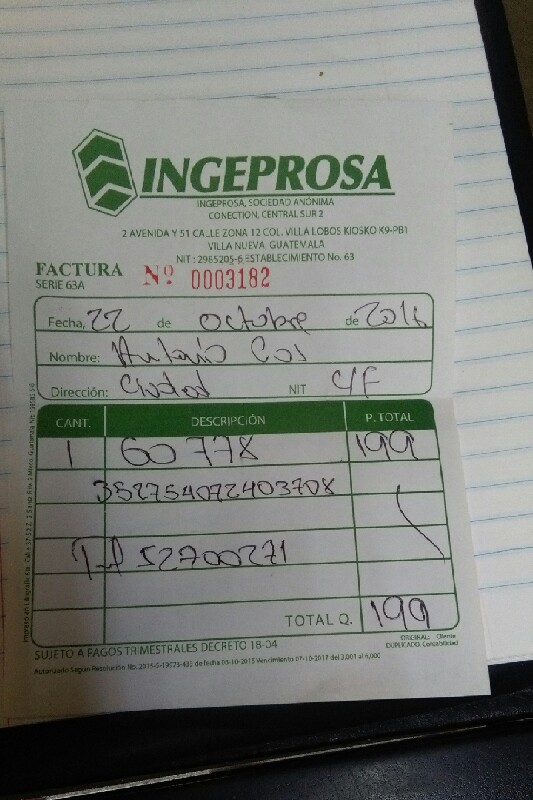 INGEPROSA
INGEPROSA, SOCIEDAD ANÓNIMA
CONECTION, CENTRAL SUR 2
2 AVENIDA Y 51 CALLE ZONA 12 COL. VILLA LOBOS KIOSKO K9-PB1
VILLA NUEVA, GUATEMALA
NIT: 2965205-6 ESTABLECIMIENTO No. 63
FACTURA Nº 0003182
SERIE 63A
Fecha, 22 de octubre de 2016
Nombre: Antonio Cos
Dirección: Ciudad NIT C/F
CANT. DESCRIPCIÓN P. TOTAL
1 60778 199
352754072403708
Tel 52700271
TOTAL Q. 199
SUJETO A PAGOS TRIMESTRALES DECRETO 18-04
ORIGINAL: Cliente
DUPLICADO: Contabilidad
Autorizado Según Resolución No. 2015-5-19978-433 de fecha 09-10-2015 Vencimiento 07-10-2017 del 3,001 al 6,000